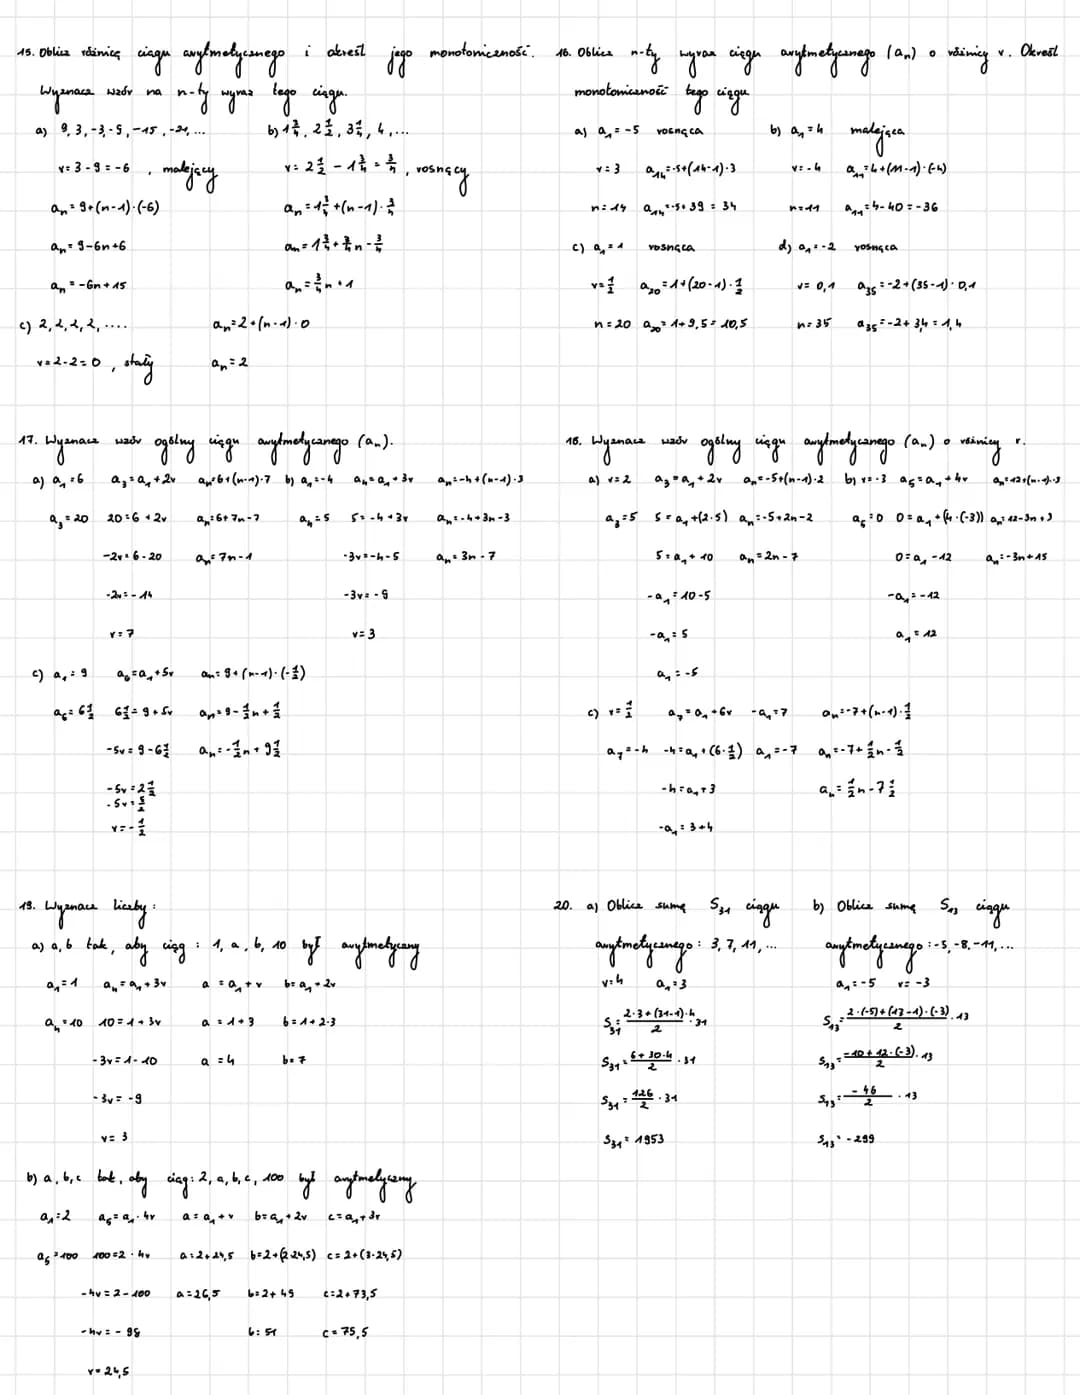 15. Oblicz różnicę ciągu arytmetycznego i określ jego monotoniczność.
Wyznacz wzór na n-ty wyraz tego ciągu.
a) 9, 3, -3, -9, -15, -21, ...
r = 3 - 9 = -6 , malejący
aₙ = 9+(n-1)·(-6)
aₙ = 9-6n+6
aₙ = -6n+15
b) 1 3/4, 2 1/2, 3 1/4, 4, ...
r = 2 1/2 - 1 3/4 = 3/4, rosnący
aₙ = 1 3/4 + (n-1)· 3/4
aₙ = 1 3/4 + 3/4 n - 3/4
aₙ = 3/4 n + 1
c) 2, 2, 2, 2, ....
r = 2-2 = 0 , stały
aₙ = 2+(n-1)·0
aₙ = 2
16. Oblicz n-ty wyraz ciągu arytmetycznego (aₙ) o różnicy r. Określ
monotoniczność tego ciągu
a) a₁ = -5 rosnąca
r = 3 a₁₄ = -5+(14-1)·3
n = 14 a₁₄ = -5+39 = 34
b) a₁ = 4 malejąca
r = -4 a₁₁ = 4+(11-1)·(-4)
n = 11 a₁₁ = 4-40 = -36
c) a₁ = 1 rosnąca
r = 1/2 a₂₀ = 1+(20-1)· 1/2
n = 20 a₂₀ = 1+9,5 = 10,5
d) a₁ = -2 rosnąca
r = 0,1 a₃₅ = -2+(35-1)·0,1
n = 35 a₃₅ = -2+3,4 = 1,4
17. Wyznacz wzór ogólny ciągu arytmetycznego (aₙ).
a) a₁ = 6 a₃ = a₁+2r aₙ = 6+(n-1)·7
a₃ = 20 20 = 6+2r aₙ = 6+7n-7
-2r = 6-20 aₙ = 7n-1
-2r = -14
r = 7
b) a₁ = -4 a₄ = a₁+3r aₙ = -4+(n-1)·3
a₄ = 5 5 = -4+3r aₙ = -4+3n-3
-3r = -4-5 aₙ = 3n-7
-3r = -9
r = 3
c) a₁ = 9 a₆ = a₁+5r aₙ = 9+(n-1)·(-1/2)
a₆ = 6 1/2 6 1/2 = 9+5r aₙ = 9 - 1/2 n + 1/2
-5r = 9 - 6 1/2 aₙ = -1/2 n + 9 1/2
-5r = 2 1/2
-5r = 5/2
r = -1/2
18. Wyznacz wzór ogólny ciągu arytmetycznego (aₙ) o różnicy r.
a) r = 2 a₃ = a₁+2r aₙ = -5+(n-1)·2
a₃ = 5 5 = a₁+(2·5) aₙ = -5+2n-2
5 = a₁+10 aₙ = 2n-7
-a₁ = 10-5
-a₁ = 5
a₁ = -5
b) r = -3 a₅ = a₁+4r aₙ = 12+(n-1)·-3
a₅ = 0 0 = a₁+(4·(-3)) aₙ = 12-3n+3
0 = a₁-12 aₙ = -3n+15
-a₁ = -12
a₁ = 12
c) r = 1/2 a₇ = a₁+6r -a₁ = 7 aₙ = -7+(n-1)· 1/2
a₇ = -4 -4 = a₁+(6· 1/2) a₁ = -7 aₙ = -7 + 1/2 n - 1/2
-4 = a₁+3 aₙ = 1/2 n - 7 1/2
-a₁ = 3+4
19. Wyznacz liczby :
a) a, b tak, aby ciąg : 1, a, b, 10 był arytmetyczny
a₁ = 1 a₄ = a₁+3r a = a₁+r b = a₁+2r
a₄ = 10 10 = 1+3r a = 1+3 b = 1+2·3
-3r = 1-10 a = 4 b = 7
-3r = -9
r = 3
b) a, b, c tak, aby ciąg: 2, a, b, c, 100 był arytmetyczny
a₁ = 2 a₅ = a₁·4r a = a₁+r b = a₁+2r c = a₁+3r
a₅ = 100 100 = 2·4r a = 2+24,5 b = 2+(2·24,5) c = 2+(3·24,5)
-4r = 2-100 a = 26,5 b = 2+49 c = 2+73,5
-4r = -98 b = 51 c = 75,5
r = 24,5
20. a) Oblicz sumę S₃₁ ciągu
arytmetycznego : 3, 7, 11, ...
r = 4 a₁ = 3
S₃₁ = (2·3+(31-1)·4)/2 · 31
S₃₁ = (6+30·4)/2 · 31
S₃₁ = 126/2 · 31
S₃₁ = 1953
b) Oblicz sumę S₁₃ ciągu
arytmetycznego : -5, -8, -11, ...
a₁ = -5 r = -3
S₁₃ = (2·(-5)+(13-1)·(-3))/2 · 13
S₁₃ = (-10+12·(-3))/2 · 13
S₁₃ = -46/2 · 13
S₁₃ = -299